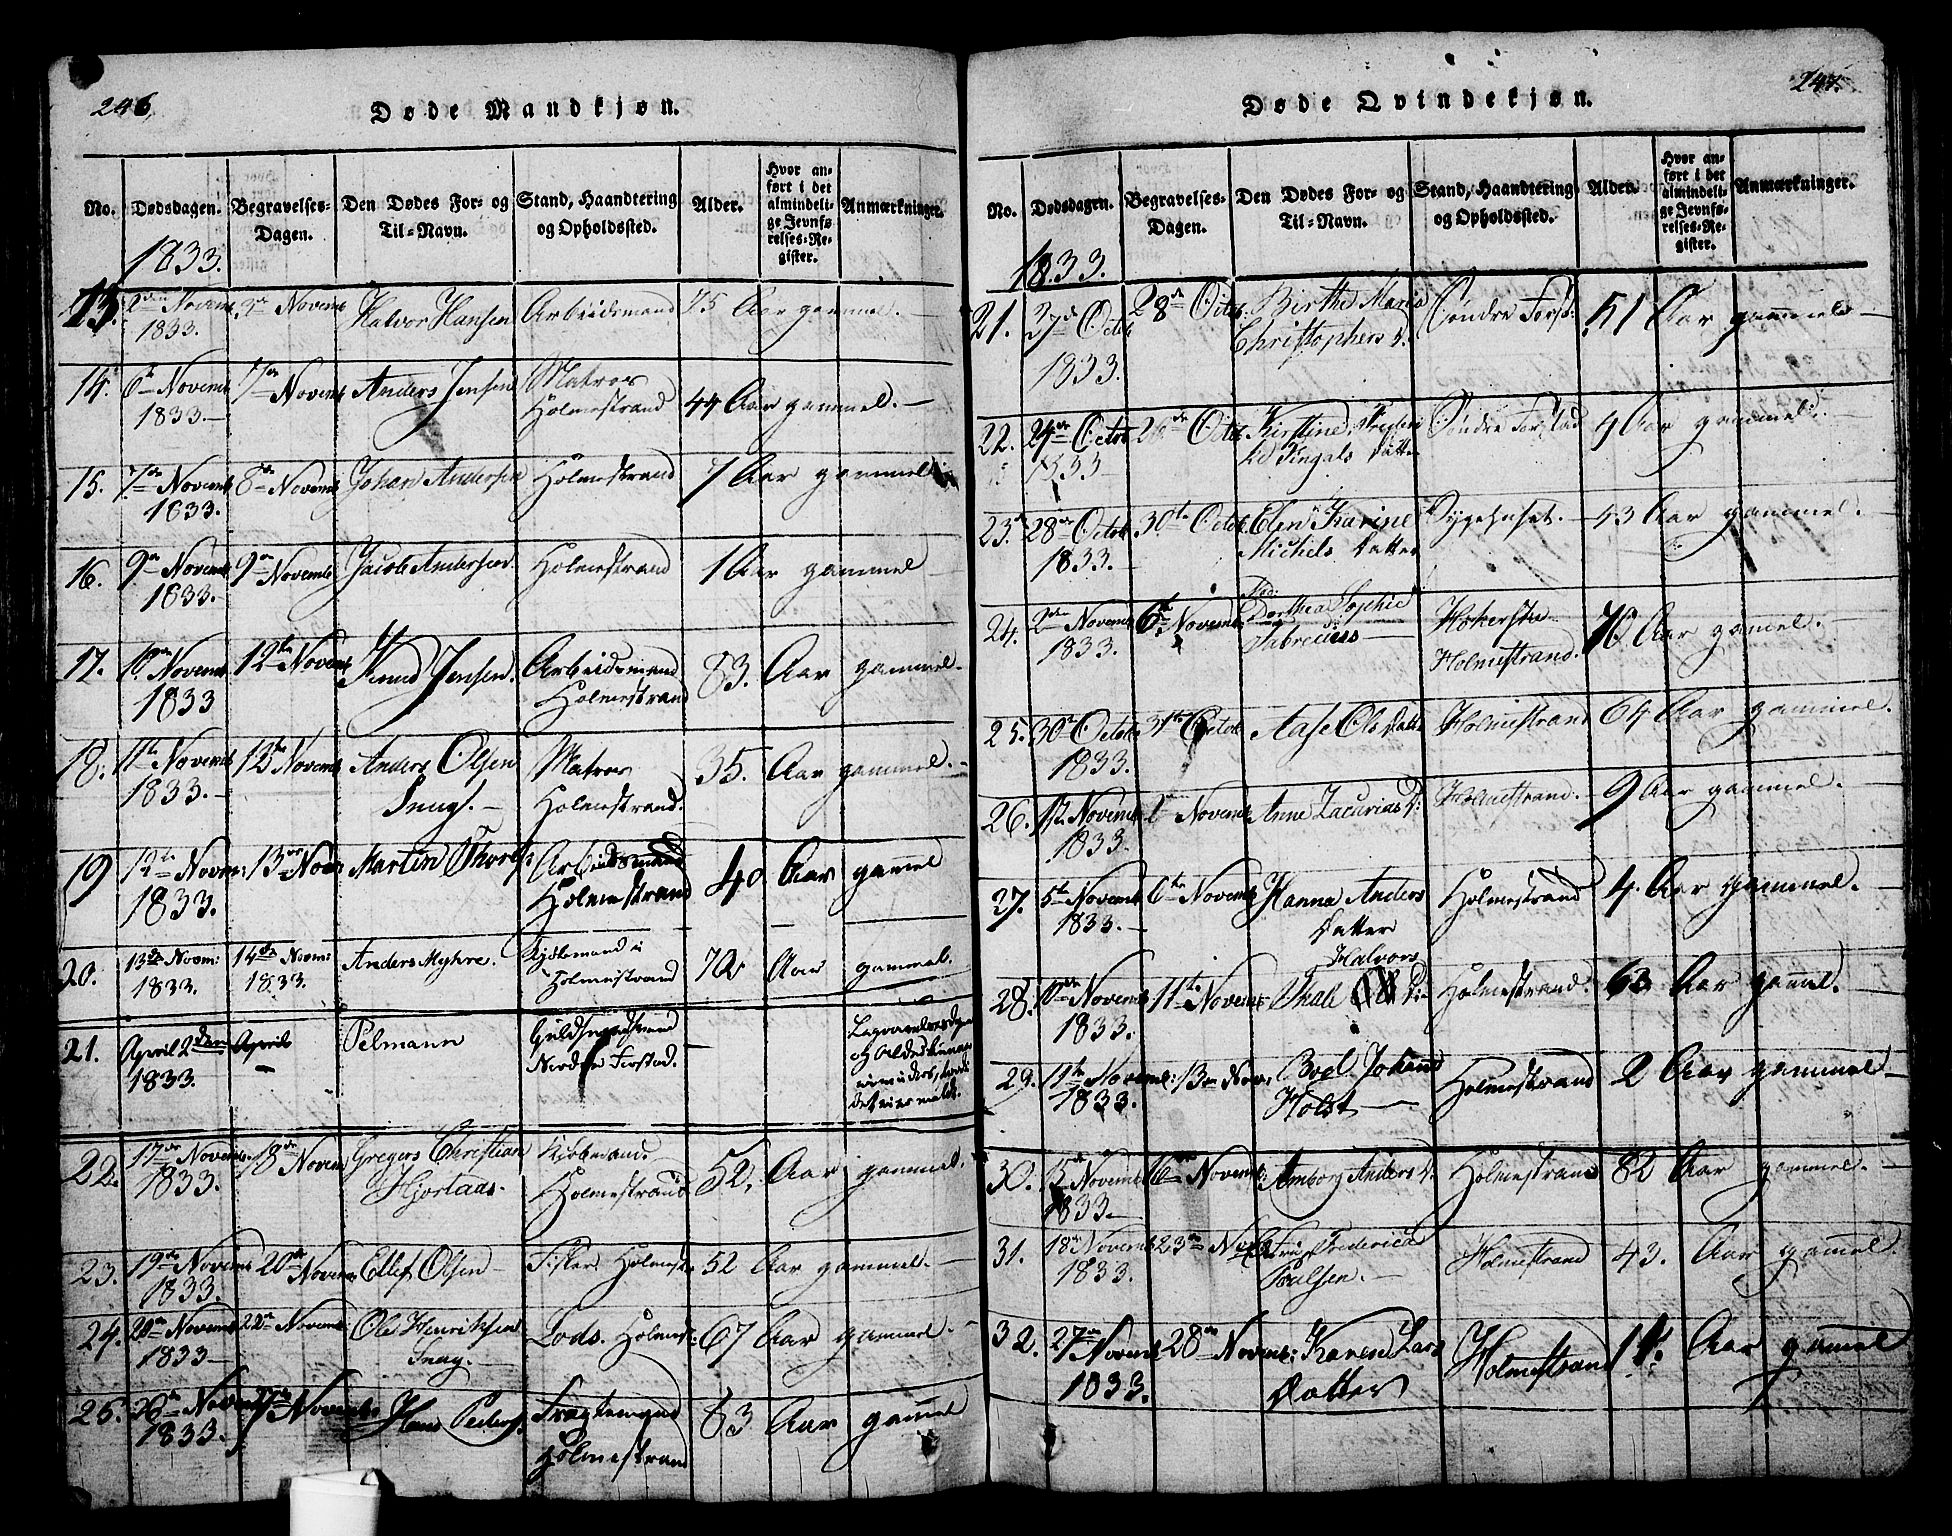 246.
Døde Mandkjøn.
No.
Dødsdagen.
Begravelses-
Dagen.
Den Dødes For- og
Til-Navn.
Stand, Haandtering
og Opholdssted.
Alder.
Hvor an-
ført i det
almindeli-
ge Jevnfø-
relses-Re-
gister.
Anmærkninger.
1833.
13. 2den Novemb 3de Novemb Halvor Hansen Arbeidsmand 75 Aar gammel.
1833.
14. 6te Novemb 7de Novemb Anders Jensen Matros 44 Aar gammel.
1833. Holmestrand
15. 7de Novemb 8de Novemb Johan Andersen Holmestrand 7 Aar gammel
1833.
16. 9de Novemb 9de Novemb Jacob Andersen Holmestrand 1 Aar gammel
1833.
17. 10de Novemb 12te Novemb Knud Jensen. Arbeidsmand 83. Aar gammel.
1833 Holmestrand
18. 11te Novemb 12te Novemb Anders Olsen Matros 35. Aar gammel.
1833. Snug. Holmestrand.
19 12te Novem: 13de Nov: Martin Thores: Arbeidsmand 40 Aar gammel
1833. Holmestrand
20. 13de Novm: 14de Novm: Anders Myhre. Kjøbmand i 72 Aar gammel.
1833. 1833. Holmestrand
21. April 2den April Pelmann Guldsmedsvend
1833. Nordre Forstad.
22. 17de Novemb. 18de Novem Gregers Christian Kjøbmand. 52. Aar gammel.
1833. Hjortaas. Holmestrand
23. 19de Novemb 20de Novem Ellef Olsen Fisker Holmestr 52 Aar gammel.
1833.
24. 20de Novemb 22de Novemb Ole Henriksen Lods. Holmest: 67 Aar gammel.
1833 Snug.
25. 26de Novemb 27de Novemb. Hans Peders. Fragtemand 83 Aar gammel
1833. Holmestrand
247.
Døde Qvindekjøn.
No.
Dødsdagen.
Begravelses-
Dagen.
Den Dødes For- og
Til-Navn.
Stand, Haandtering
og Opholdssted.
Alder.
Hvor an-
ført i det
almindeli-
ge Jevnfø-
relses-Re-
gister.
Anmærkninger.
1833.
21. 27de Octob 28de Octob. Birthe Maria Søndre Forst: 51 Aar gammel
1833. Christophers d.
22. 24de Octob 26de Octob Kirstine Søndre Forstad 9 Aar gammel.
1833 Datter
23. 28de Octob 30te Octob. Elen Karine Sygehuset. 43 Aar gammel.
1833. Michels Datter
24. 2den Novemb 6te Novemb. Dorthea Sophie 76 Aar gammel.
1833. Fabrecius Holmestrand.
25. 30te Octob. 31te Octob Aase Ols Datt: Holmestrand 64 Aar gammel.
1833.
26. Novemb Novemb Anne Zacarias d: Holmestrand. 9 Aar gammel.
1833.
27. 5te Novemb 6te Novemb Hanna Anders Holmestrand 4. Aar gammel.
1833. Datter
Halvors
28. 10de Novemb 11te Novemb Thale D: Holmestrand. 63 Aar gammel.
1833.
29. 11te Novemb: 13de Nov: Boel Johanne Holmestrand 2 Aar gammel
1833. Holst
30. 15de Novemb 16de Novemb. Amborg Anders d. Holmestrand 82 Aar gammel.
1833.
31. 18de Novemb 23de Nov Fru Frederica Holmestrand 43. Aar gammel.
1833. Poulsen.
32. 27de Novemb 28de Novemb: Karen Lars Holmestrand Aar gammel
1833. Datter